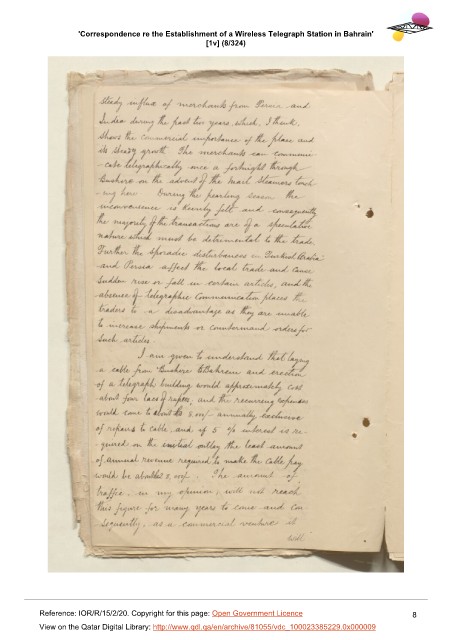 'Correspondence re the Establishment of a Wireless Telegraph Station in Bahrain'
[1v] (8/324)
steady influx of merchants from Persia and
India during the past two years, which, I think,
shows the commercial importance of the place and
its steady growth. The merchants can communi-
-cate telegraphically once a fortnight through
Bushire on the advent of the mail steamers touch
-ing here. During the pearling season the
inconvenience is keenly felt and consequently
the majority of the transactions are of a speculative
nature which must be detrimental to the trade.
Further the sporadic disturbances in Turkish Arabia
and Persia affect the local trade and cause
sudden rise or fall in certain articles, and the
absence of telegraphic communication places the
traders to a disadvantage as they are unable
to increase shipments or countermand orders for
such articles.
I am given to understand that laying
a cable from Bushire to Bahrein and erection
of a telegraph building would approximately cost
about four lacs of rupees, and the recurring expenses
would come to about annually exclusive
of repairs to cable and if 5 % interest is re-
-quired on the initial outlay the least amount
of annual revenue required to make the cable pay
would be about The amount of
traffic, in my opinion, will not reach
this figure for many years to come and con
sequently, as a commercial venture it
will
Reference: IOR/R/15/2/20. Copyright for this page: Open Government Licence
8
View on the Qatar Digital Library: http://www.qdl.qa/en/archive/81055/vdc_100023385229.0x000009